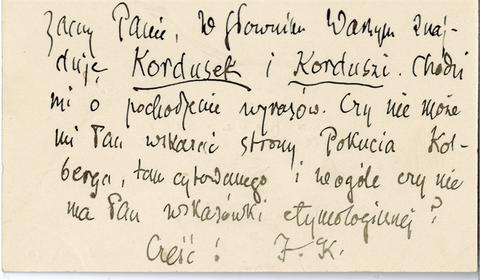 Zacny Panie, W Słowniku Waszym znaj-
duję Kordusek i Korduszi. Chodzi
mi o pochodzenie wyrazów. Czy nie może
mi Pan wskazać strony Pokucia Kol-
berga, tam cytowanego i wogóle czy nie
ma Pan wskazówki etymologicznej?
Cześć! J. K.